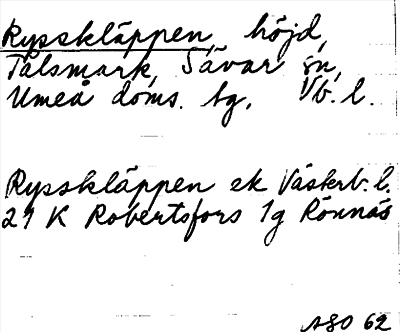 Rysskläppen höjd,
Tålsmark, Sävar sn,
Umeå doms. tg, Vb. l.
Rysskläppen ek Västerb. l.
21 K Robertsfors 1g Rönnäs
ASO 62